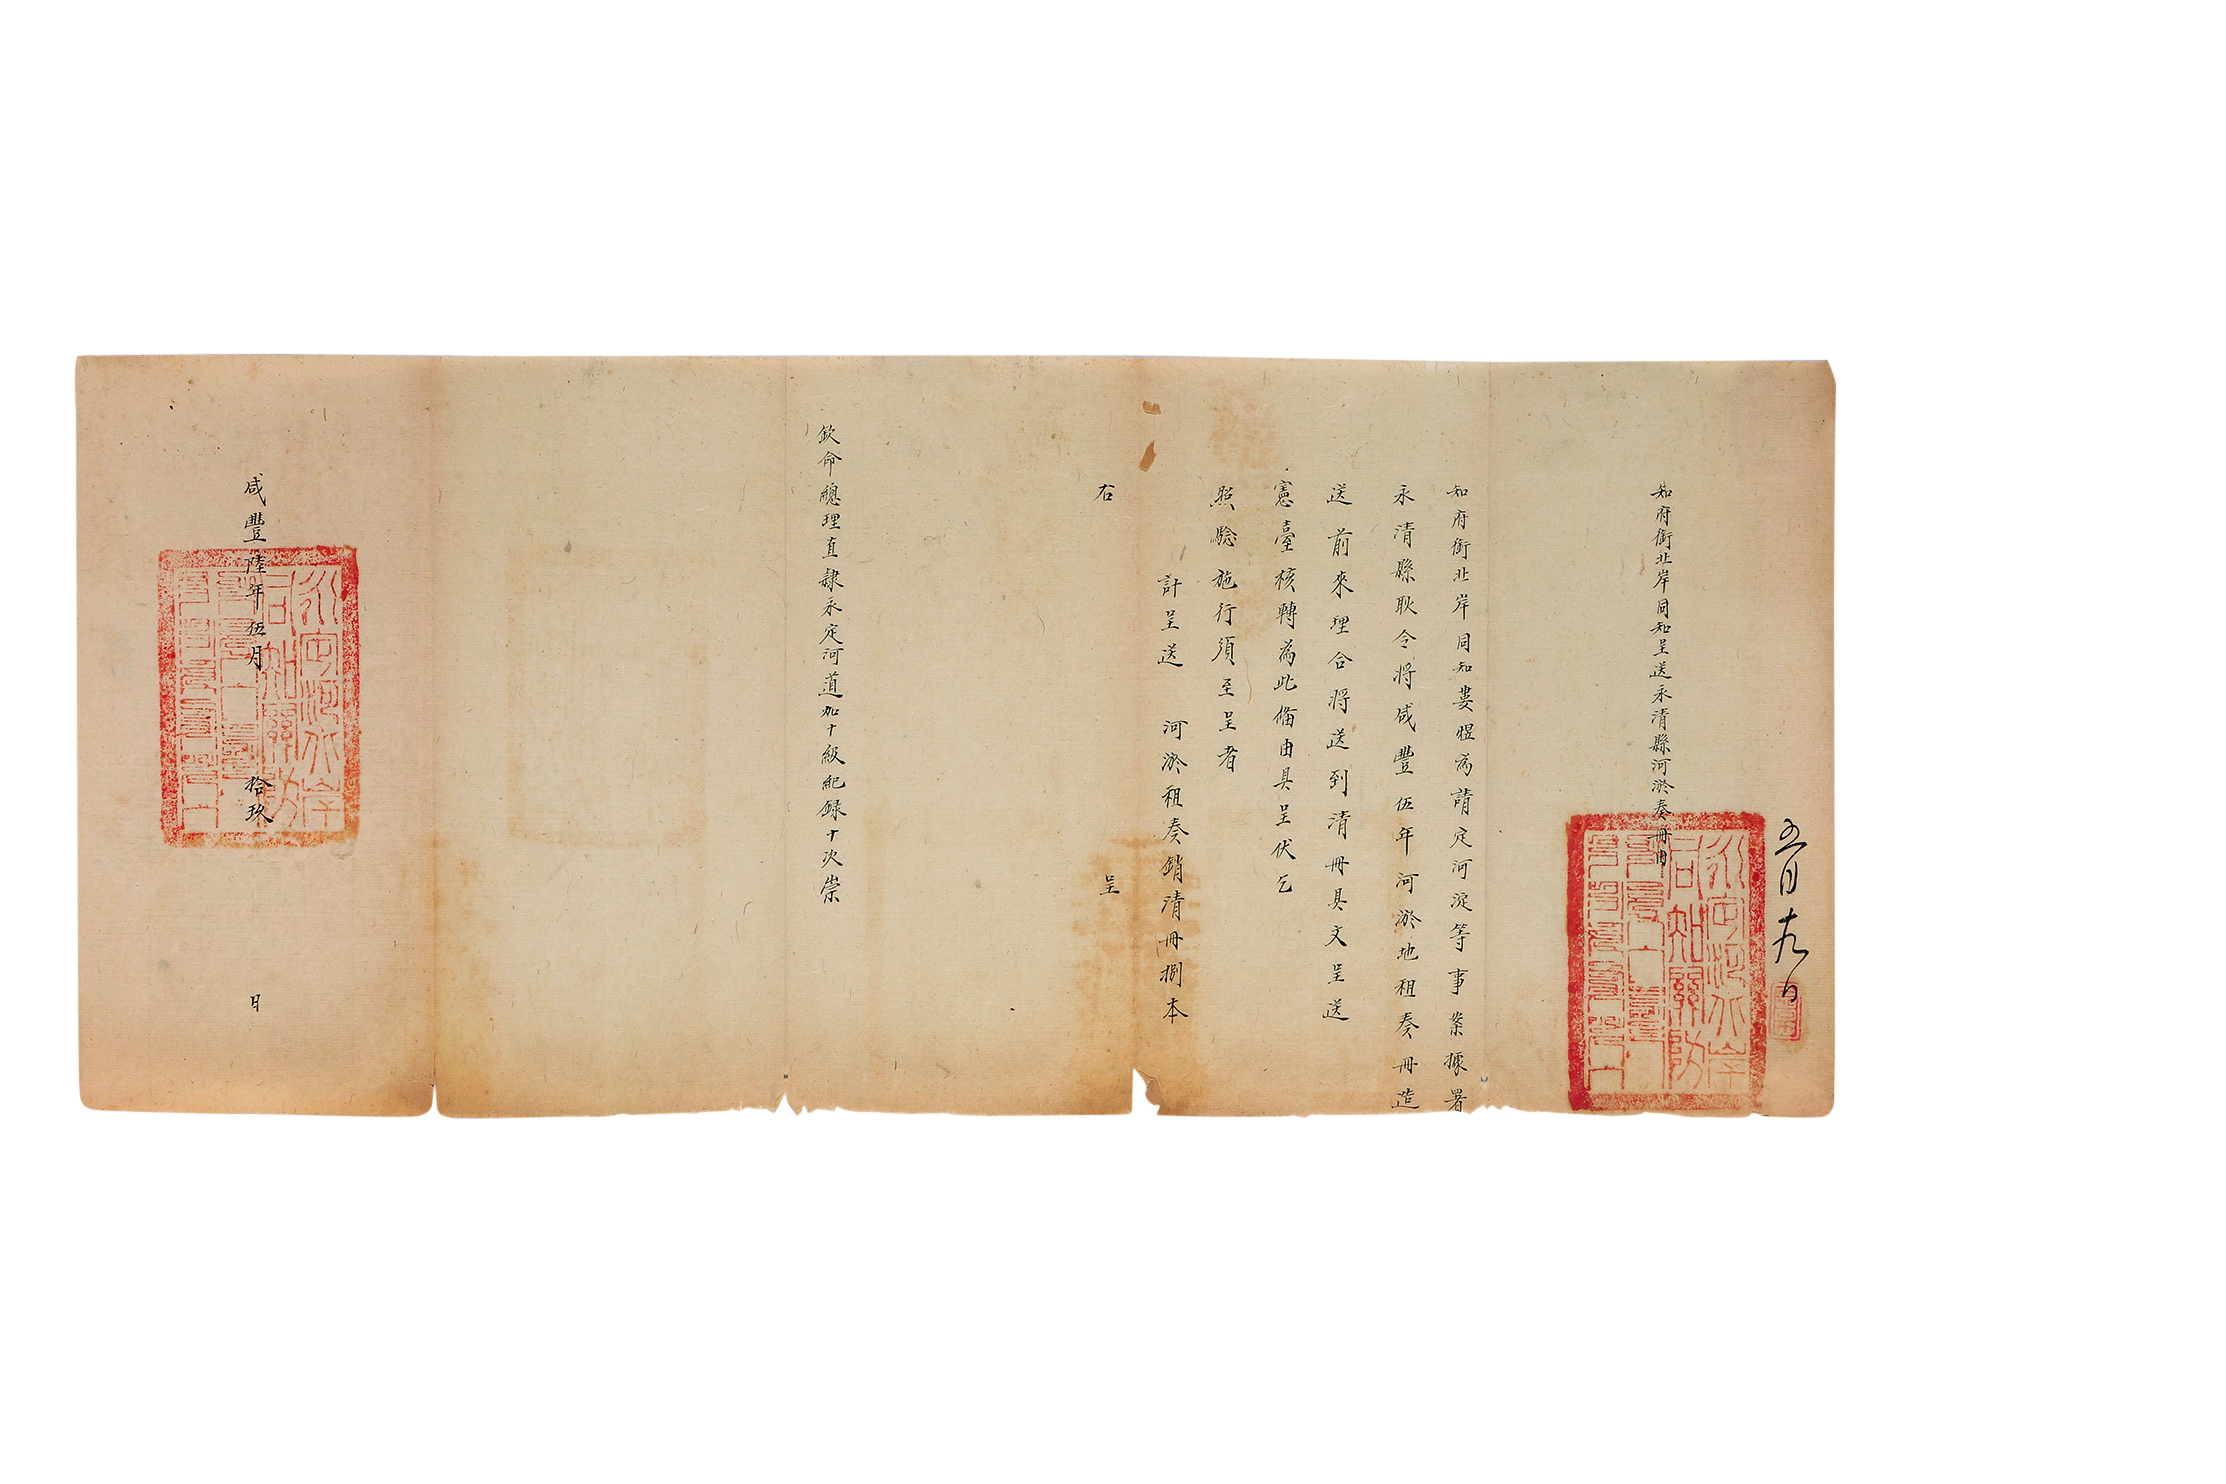 五月十九日
知府銜北岸同知呈送永清縣河淤奏冊由
知府銜北岸同知婁煜為請定河淀等事案據署
永清縣耿令將咸豐伍年河淤地租奏冊造
送前來理合將送到清冊具文呈送
憲臺核轉為此備由具呈伏乞
照驗施行須至呈者
計呈送 河淤租奏銷清冊捌本
右 呈
欽命總理直隸永定河道加十級紀錄十次崇
咸豐陸年伍月 拾玖 日
永定河北岸
同知關防